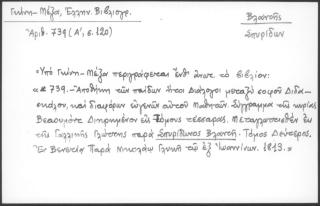 Γκίνη - Μέξα, Ἑλλην. Βιβλιογρ.
Βλαντῆς
Ἀριθ. 739 (Α', σ. 120)
Σπυρίδων
Ὑπὸ Γκίνη - Μέξα περιγράφεται ἔνθ' ἄνω τὸ βιβλίον:
« 739. - Ἀποθήκη τῶν παίδων ἤτοι Διάλογοι μεταξὺ σοφοῦ Διδα-
σκάλου, καὶ διαφόρων εὐγενῶν αὐτοῦ Μαθητῶν Σύγγραμμα τῆς κυρίας
Βεαουμὸντ Διῃρημένον εἰς τόμους τέσσαρας. Μεταγλωττισθὲν ἐκ
τῆς Γαλλικῆς Γλώσσης παρὰ Σπυρίδωνος Βλαντῆ. Τόμος Δεύτερος.
Ἐν Βενετίᾳ Παρὰ Νικολάῳ Γλυκῇ τῷ ἐξ Ἰωαννίνων. 1813.»